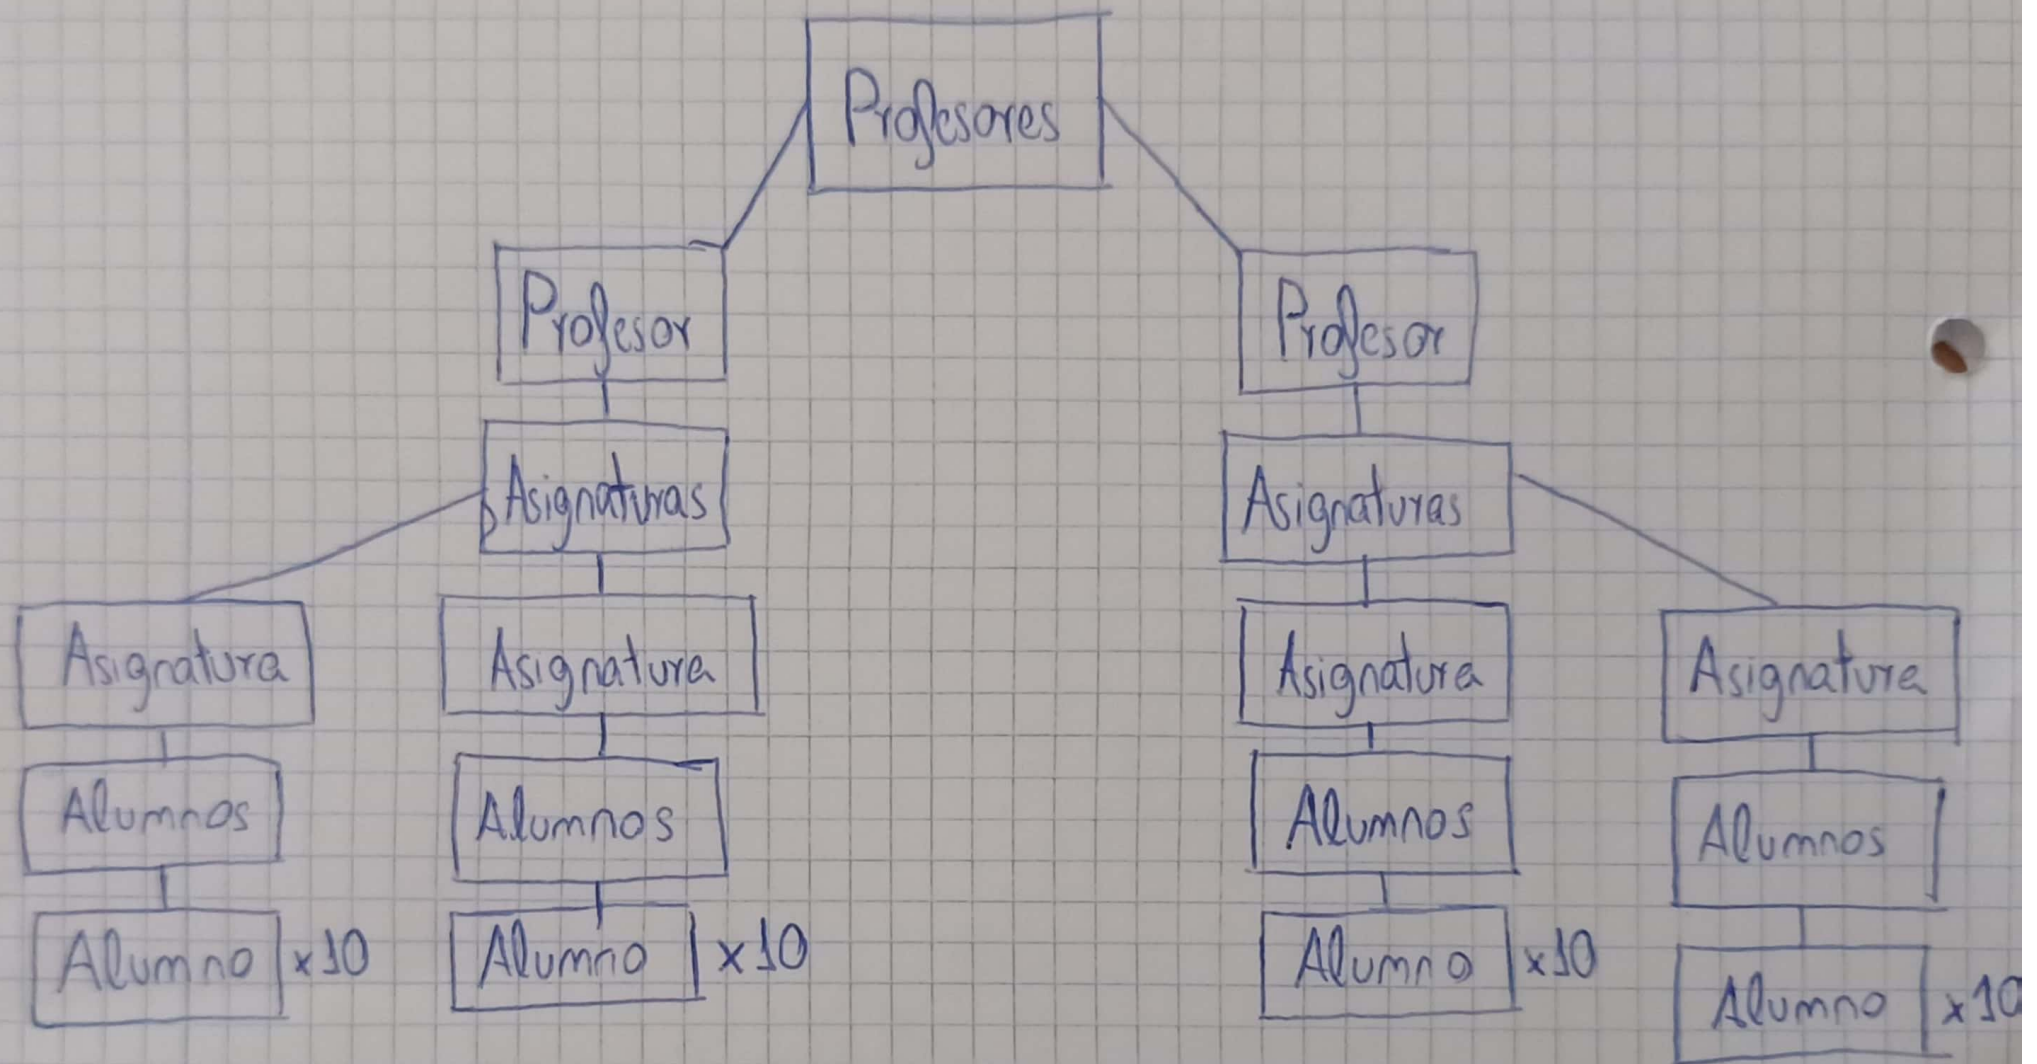 Profesores
Profesor
Profesor
Asignaturas
Asignaturas
Asignatura
Asignatura
Asignatura
Asignatura
Alumnos
Alumnos
Alumnos
Alumnos
Alumno x10
Alumno x10
Alumno x10
Alumno x10